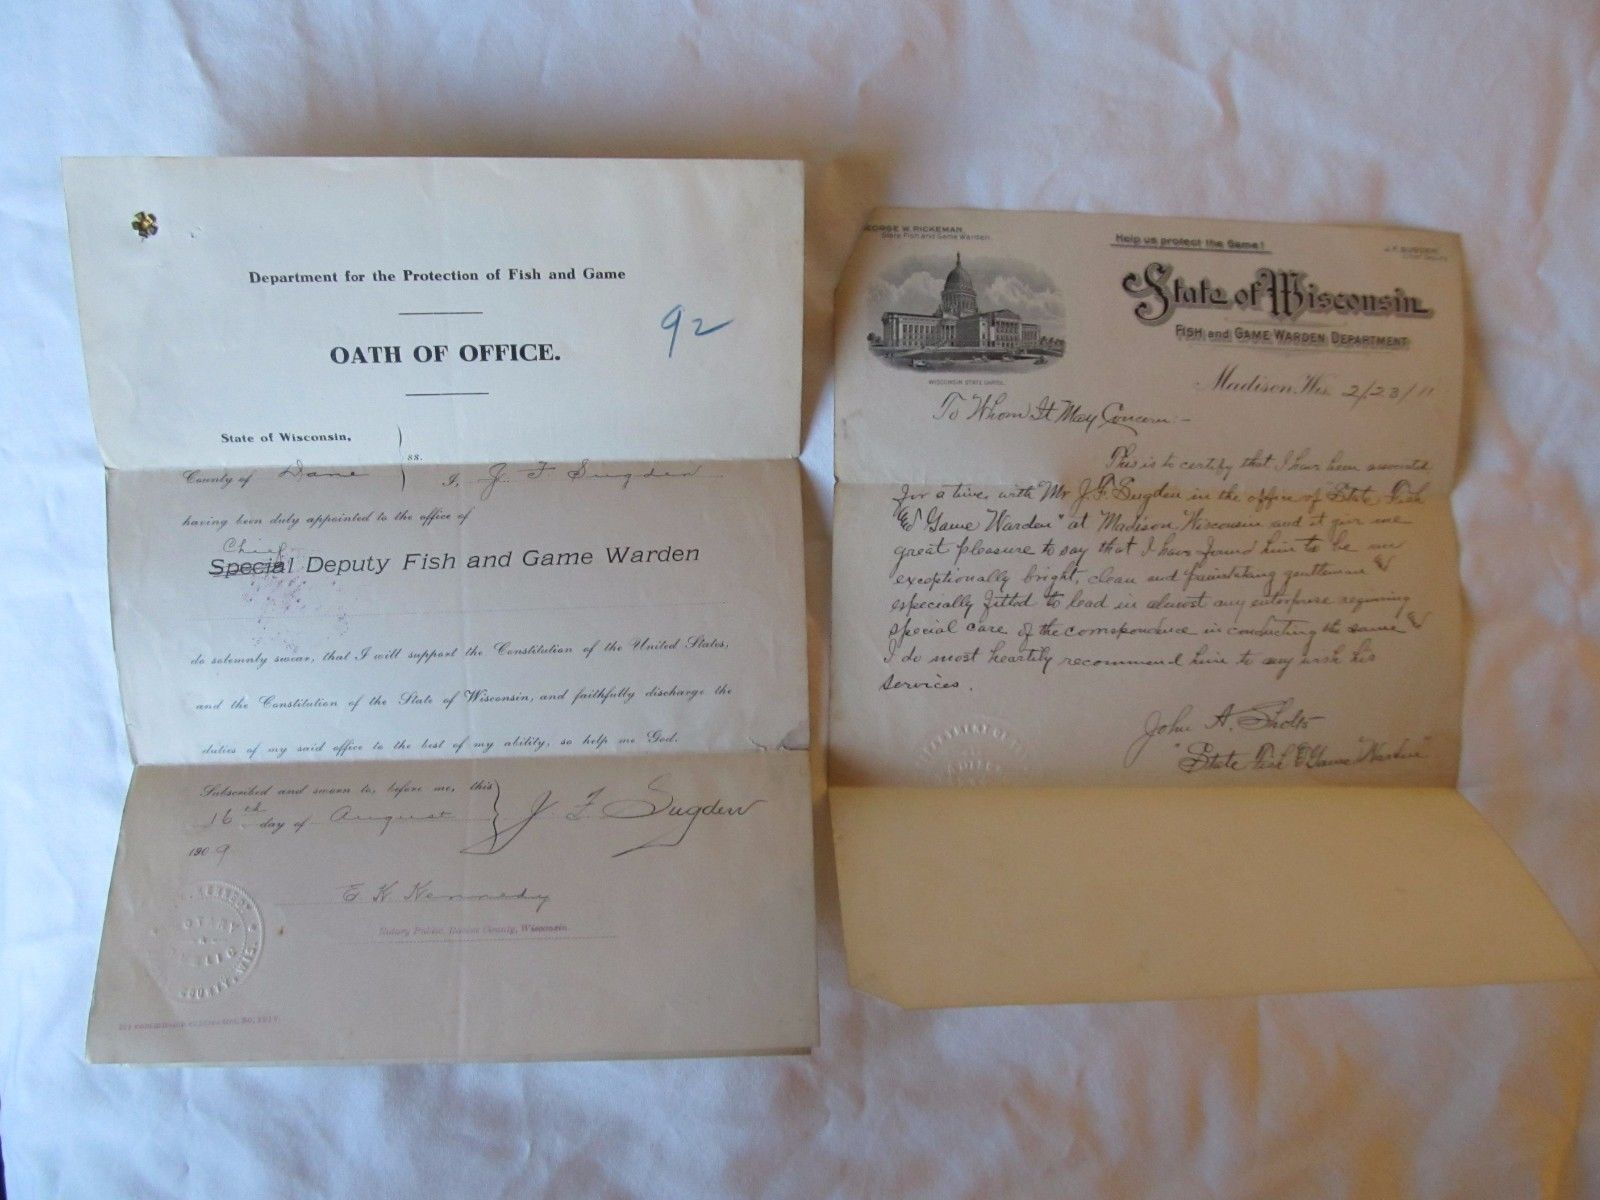 Department for the Protection of Fish and Game
92
OATH OF OFFICE.
State of Wisconsin,
ss.
County of Dane
I, J. F. Sugden
having been duly appointed to the office of
Chief
Special Deputy Fish and Game Warden
do solemnly swear, that I will support the Constitution of the United States,
and the Constitution of the State of Wisconsin, and faithfully discharge the
duties of my said office to the best of my ability, so help me God.
Subscribed and sworn to, before me, this
16th day of August
1909
J. F. Sugden
E K Kennedy
Notary Public, Dane County, Wisconsin
NOTARY
PUBLIC
COUNTY, WIS.
GEORGE W. RICKEMAN,
State Fish and Game Warden
Help us protect the Game!
J. F. SUGDEN
State of Wisconsin
FISH and GAME WARDEN DEPARTMENT
WISCONSIN STATE CAPITOL
Madison, Wis. 2/23/11
To Whom It May Concern:-
This is to certify that I have been associated
for a time with Mr J. F. Sugden in the office of "State Fish
& Game Warden" at Madison Wisconsin and it give me
great pleasure to say that I have found him to be an
exceptionally bright, clean and painstaking gentleman &
especially fitted to lead in almost any enterprise requiring
special care of the correspondence in conducting the same &
I do most heartily recommend him to any wish his
services.
John A. Sholts
"State Fish & Game Warden"